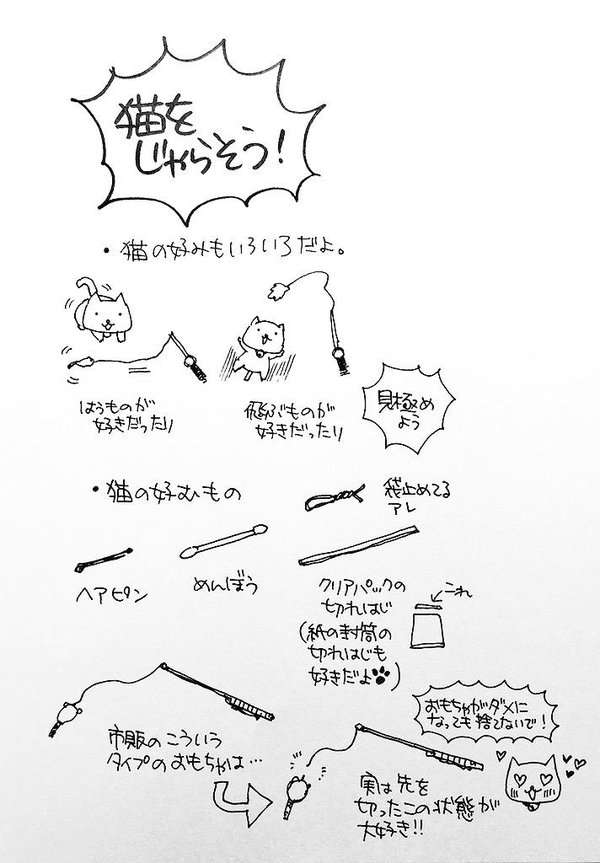 猫を
じゃらそう！
・猫の好みもいろいろだよ。
はうものが
好きだったり
飛ぶものが
好きだったり
見極め
よう
・猫の好むもの
袋止めてる
アレ
ヘアピン
めんぼう
クリアパックの
切れはじ
(紙の封筒の
切れはじも
好きだよ)
これ
市販のこういう
タイプのおもちゃは…
おもちゃがダメに
なっても捨てないで！
実は先を
切ったこの状態が
大好き!!